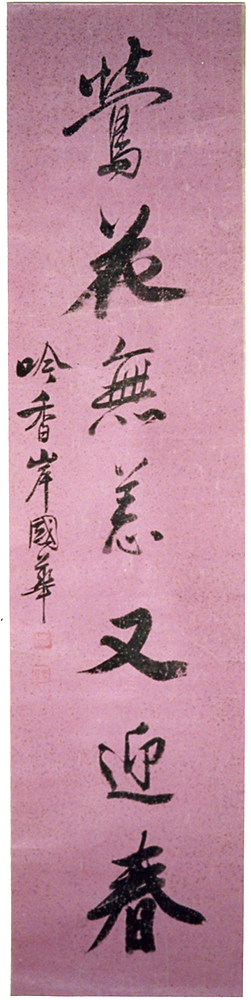 鶯花無恙又迎春
吟香岸國華